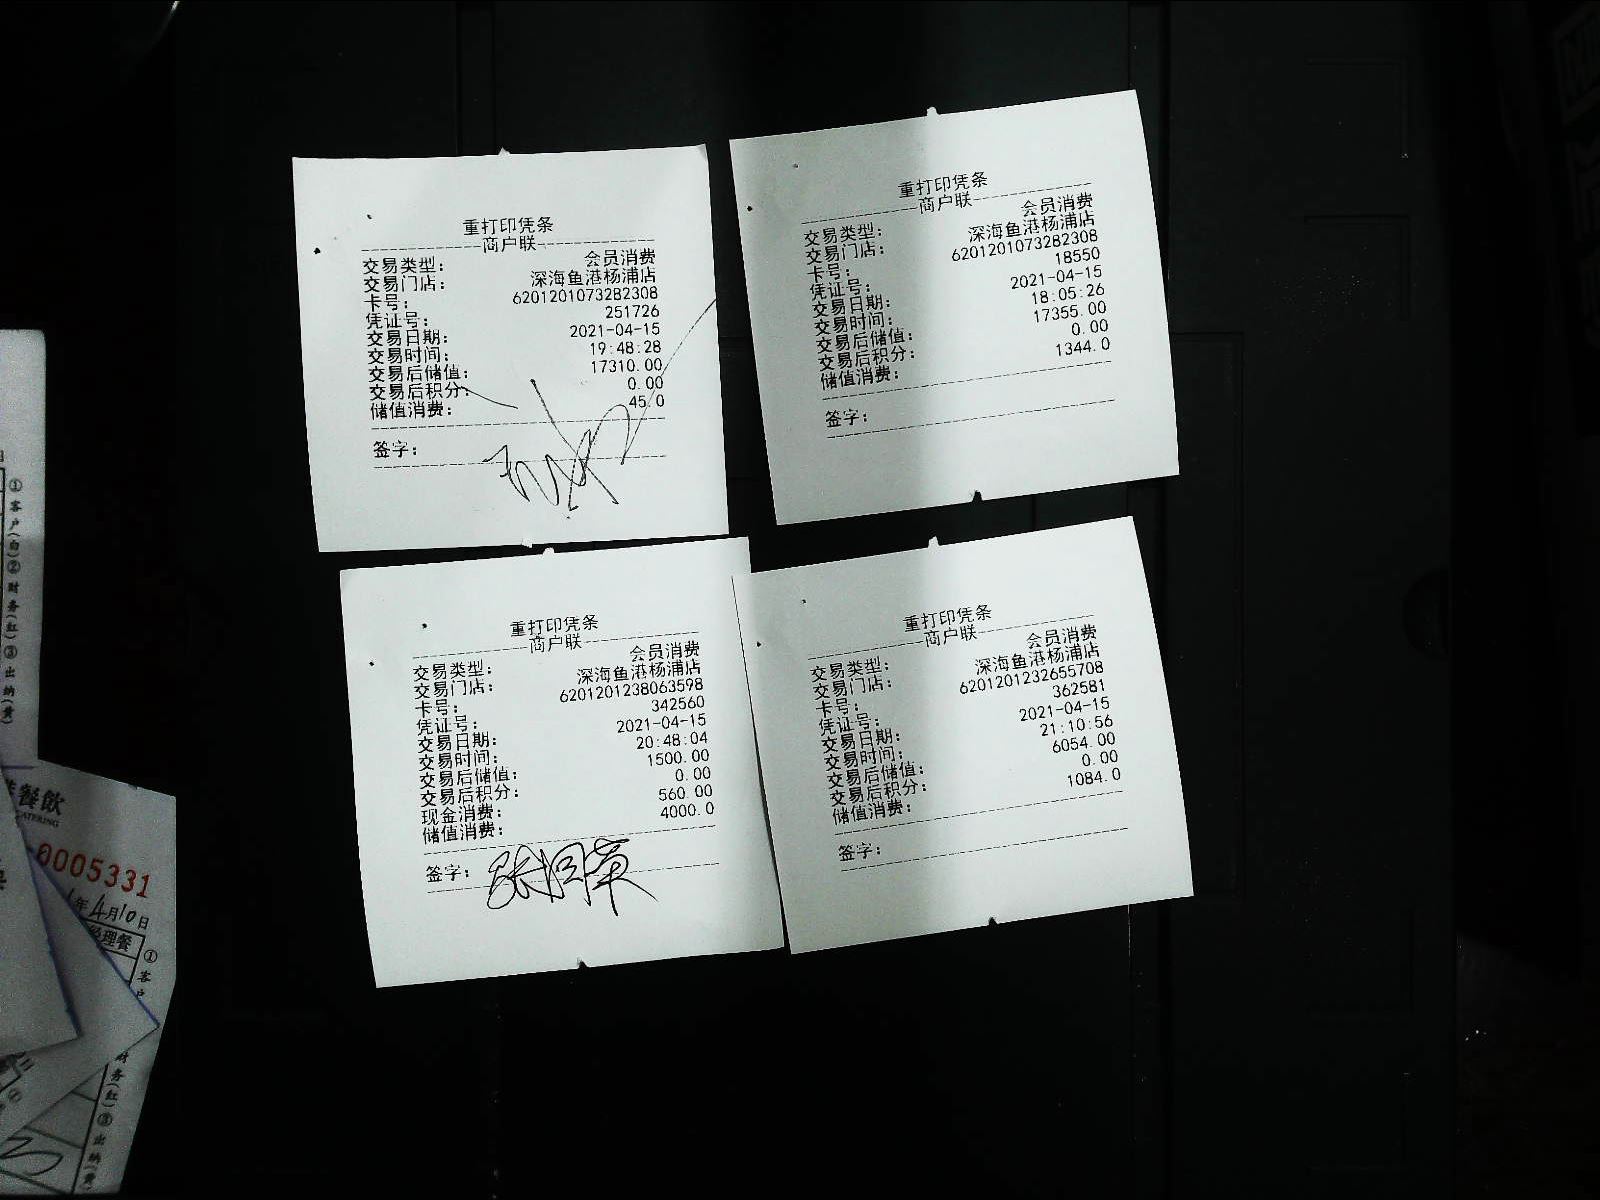 重打印凭条
商户联
交易类型： 会员消费
交易门店： 深海鱼港杨浦店
卡号： 6201201073282308
凭证号： 251726
交易日期： 2021-04-15
交易时间： 19:48:28
交易后储值： 17310.00
交易后积分： 0.00
储值消费： 45.0
签字：
重打印凭条
商户联
交易类型： 会员消费
交易门店： 深海鱼港杨浦店
卡号： 6201201073282308
凭证号： 18550
交易日期： 2021-04-15
交易时间： 18:05:26
交易后储值： 17355.00
交易后积分： 0.00
储值消费： 1344.0
签字：
重打印凭条
商户联
交易类型： 会员消费
交易门店： 深海鱼港杨浦店
卡号： 6201201238063598
凭证号： 342560
交易日期： 2021-04-15
交易时间： 20:48:04
交易后储值： 1500.00
交易后积分： 0.00
现金消费： 560.00
储值消费： 4000.0
签字：
重打印凭条
商户联
交易类型： 会员消费
交易门店： 深海鱼港杨浦店
卡号： 6201201232655708
凭证号： 362581
交易日期： 2021-04-15
交易时间： 21:10:56
交易后储值： 6054.00
交易后积分： 0.00
储值消费： 1084.0
签字：
①客户(白)②财务(红)③出纳(黄)
餐飲
CATERING
0005331
年4月10日
理餐
①客户
财务(红)③出纳(黄)